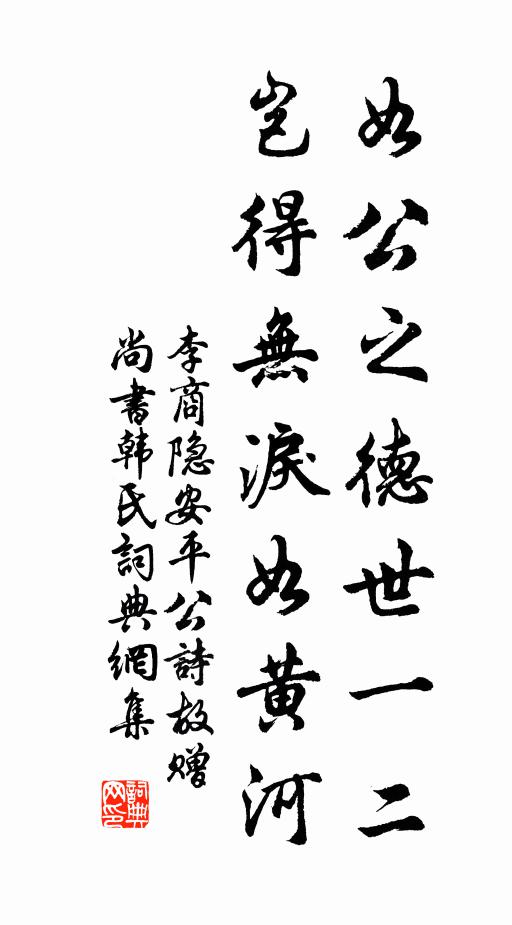 如公之德世一二
豈得無淚如黄河
李商隐安平公詩故赠
尚書韩氏詞典網集
詞典
网印